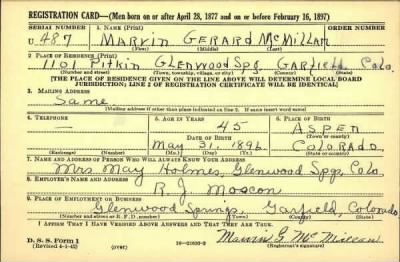 REGISTRATION CARD—(Men born on or after April 28, 1877 and on or before February 16, 1897)
SERIAL NUMBER 1. NAME (Print)
U 487 MARVIN GERARD McMILLAN
(First) (Middle) (Last)
2. PLACE OF RESIDENCE (Print)
1101 PITKIN GLENWOOD SPG. GARFIELD COLO.
(Number and street) (Town, township, village, or city) (County) (State)
[THE PLACE OF RESIDENCE GIVEN ON THE LINE ABOVE WILL DETERMINE LOCAL BOARD
JURISDICTION; LINE 2 OF REGISTRATION CERTIFICATE WILL BE IDENTICAL]
3. MAILING ADDRESS
Same
[Mailing address if other than place indicated on line 2. If same insert word same]
4. TELEPHONE 5. AGE IN YEARS 6. PLACE OF BIRTH
— 45 ASPEN
DATE OF BIRTH (Town or county)
May 31, 1896 COLORADO
(Mo.) (Day) (Yr.) (State or country)
7. NAME AND ADDRESS OF PERSON WHO WILL ALWAYS KNOW YOUR ADDRESS
Mrs May Holmes, Glenwood Spgs, Colo
8. EMPLOYER'S NAME AND ADDRESS
R. J. Moscon
9. PLACE OF EMPLOYMENT OR BUSINESS
Glenwood Springs, Garfield, Colorado
(Number and street or R. F. D. number) (Town) (County) (State)
I AFFIRM THAT I HAVE VERIFIED ABOVE ANSWERS AND THAT THEY ARE TRUE.
D. S. S. Form 1
(Revised 4-1-42) (over) 16—21630-2 Marvin G. McMillan
(Registrant's signature)